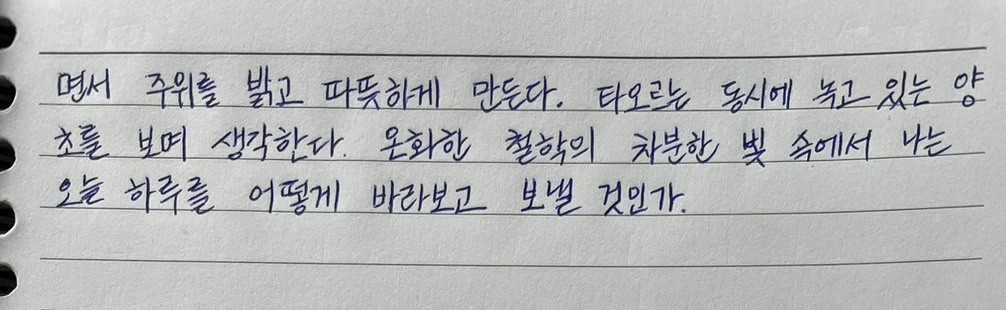 면서 주위를 밝고 따뜻하게 만든다. 타오르는 동시에 녹고 있는 양
초를 보며 생각한다. 온화한 철학의 차분한 빛 속에서 나는
오늘 하루를 어떻게 바라보고 보낼 것인가.